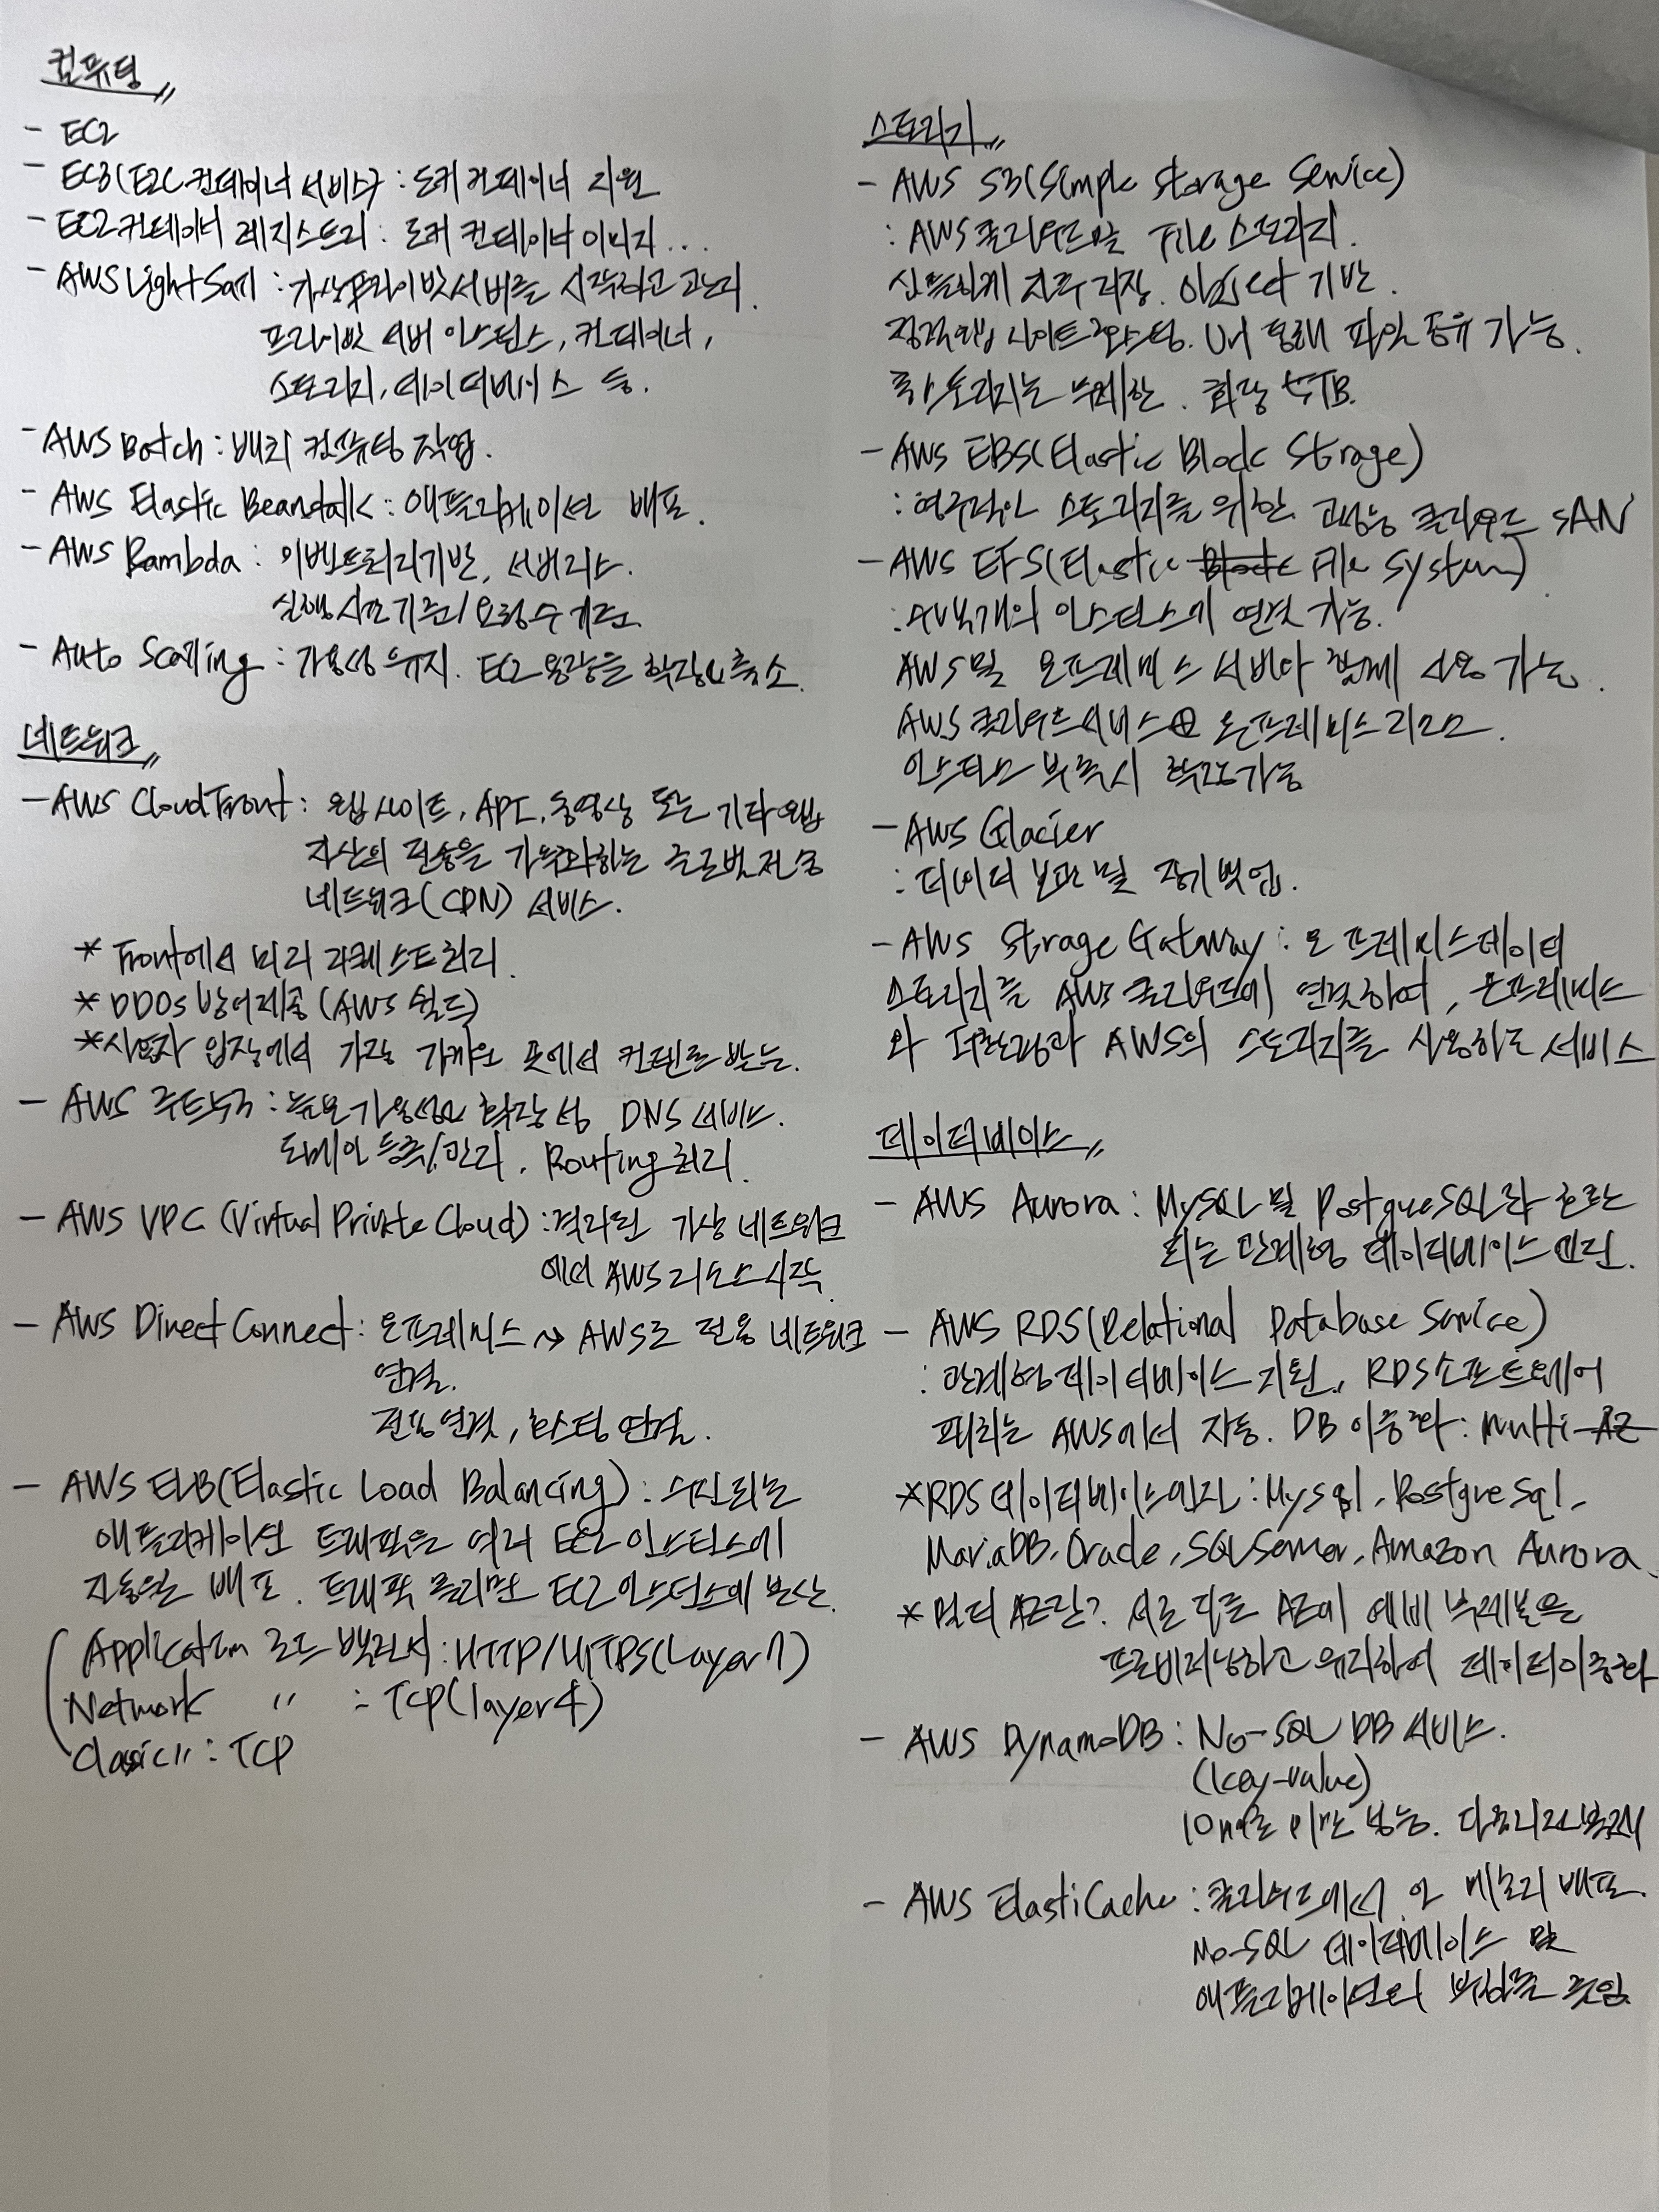 컴퓨팅
- EC2
- EC3(E2C 컨테이너 서비스) : 도커 컨테이너 지원
- EC2 컨테이너 레지스트리 : 도커 컨테이너 이미지...
- AWS LightSail : 가상 프라이빗 서버를 시작하고 관리.
프라이빗 서버 인스턴스, 컨테이너,
스토리지, 데이터베이스 등.
- AWS Batch : 배치 컴퓨팅 작업.
- AWS Elastic Beanstalk : 애플리케이션 배포.
- AWS Rambda : 이벤트처리기반, 서버리스.
실행 시간 기준/요청 수 기준
- Auto Scaling : 가용성 유지. EC2 용량을 확장/축소.
네트워크
- AWS CloudFront : 웹사이트, API, 동영상 또는 기타 웹
자산의 전송을 가속화하는 글로벌 전송
네트워크(CDN) 서비스.
* Front에서 미리 리퀘스트 처리.
* DDOS 방어 제공 (AWS 쉴드)
* 사용자 입장에서 가장 가까운 곳에서 컨텐츠를 받는.
- AWS 루트53 : 높은 가용성과 확장성 DNS 서비스.
도메인 등록/관리, Routing 처리.
- AWS VPC (Virtual Private Cloud) : 격리된 가상 네트워크
에서 AWS 리소스 시작
- AWS Direct Connect : 온프레미스 → AWS로 전용 네트워크
연결.
전용 연결, 호스팅 연결.
- AWS ELB(Elastic Load Balancing) : 수신되는
애플리케이션 트래픽을 여러 EC2 인스턴스에
자동으로 배포. 트래픽 몰리면 EC2 인스턴스에 분산.
Application 로드 밸런서 : HTTP/HTTPS(Layer7)
Network 〃 : TCP(layer4)
Clasic 〃 : TCP
스토리지
- AWS S3(Simple Storage Service)
: AWS 클라우드용 File 스토리지.
신뢰하게 자료 저장. Object 기반.
정적 웹 사이트 호스팅. Url 통해 파일 공유 가능.
총 스토리지는 무제한. 최대 5TB.
- AWS EBS(Elastic Block Strage)
: 영구적인 스토리지를 위한 고성능 클라우드 SAN
- AWS EFS(Elastic Block File System)
: 수백개의 인스턴스에 연결 가능.
AWS 및 온프레미스 서버와 함께 사용 가능.
AWS 클라우드 서비스와 온프레미스 리소스.
인스턴스 부족시 확장가능
- AWS Glacier
: 데이터 보관 및 장기 백업.
- AWS Strage Gatway : 온프레미스 데이터
스토리지를 AWS 클라우드에 연결하여, 온프레미스
와 AWS의 스토리지를 사용하는 서비스
데이터베이스
- AWS Aurora : MySQL 및 PostgreSQL과 호환
되는 관계형 데이터베이스 엔진.
- AWS RDS(Relational Database Service)
: 관계형 데이터베이스 지원, RDS 소프트웨어
패치는 AWS에서 자동. DB 이중화 : Multi-AZ
*RDS 데이터베이스엔진 : Mysql, Postgresql,
MariaDB, Oracle, SQLServer, Amazon Aurora.
* 멀티 AZ란? 서로 다른 AZ에 예비 복제본을
프로비저닝하고 유지하여 데이터이중화
- AWS DynamoDB : No-SQL DB 서비스.
(key-value)
10ms로 미만 성능. 다중리전복제
- AWS ElastiCache : 클라우드에서 인 메모리 배포.
No-SQL 데이터베이스 및
애플리케이션의 부하를 줄임